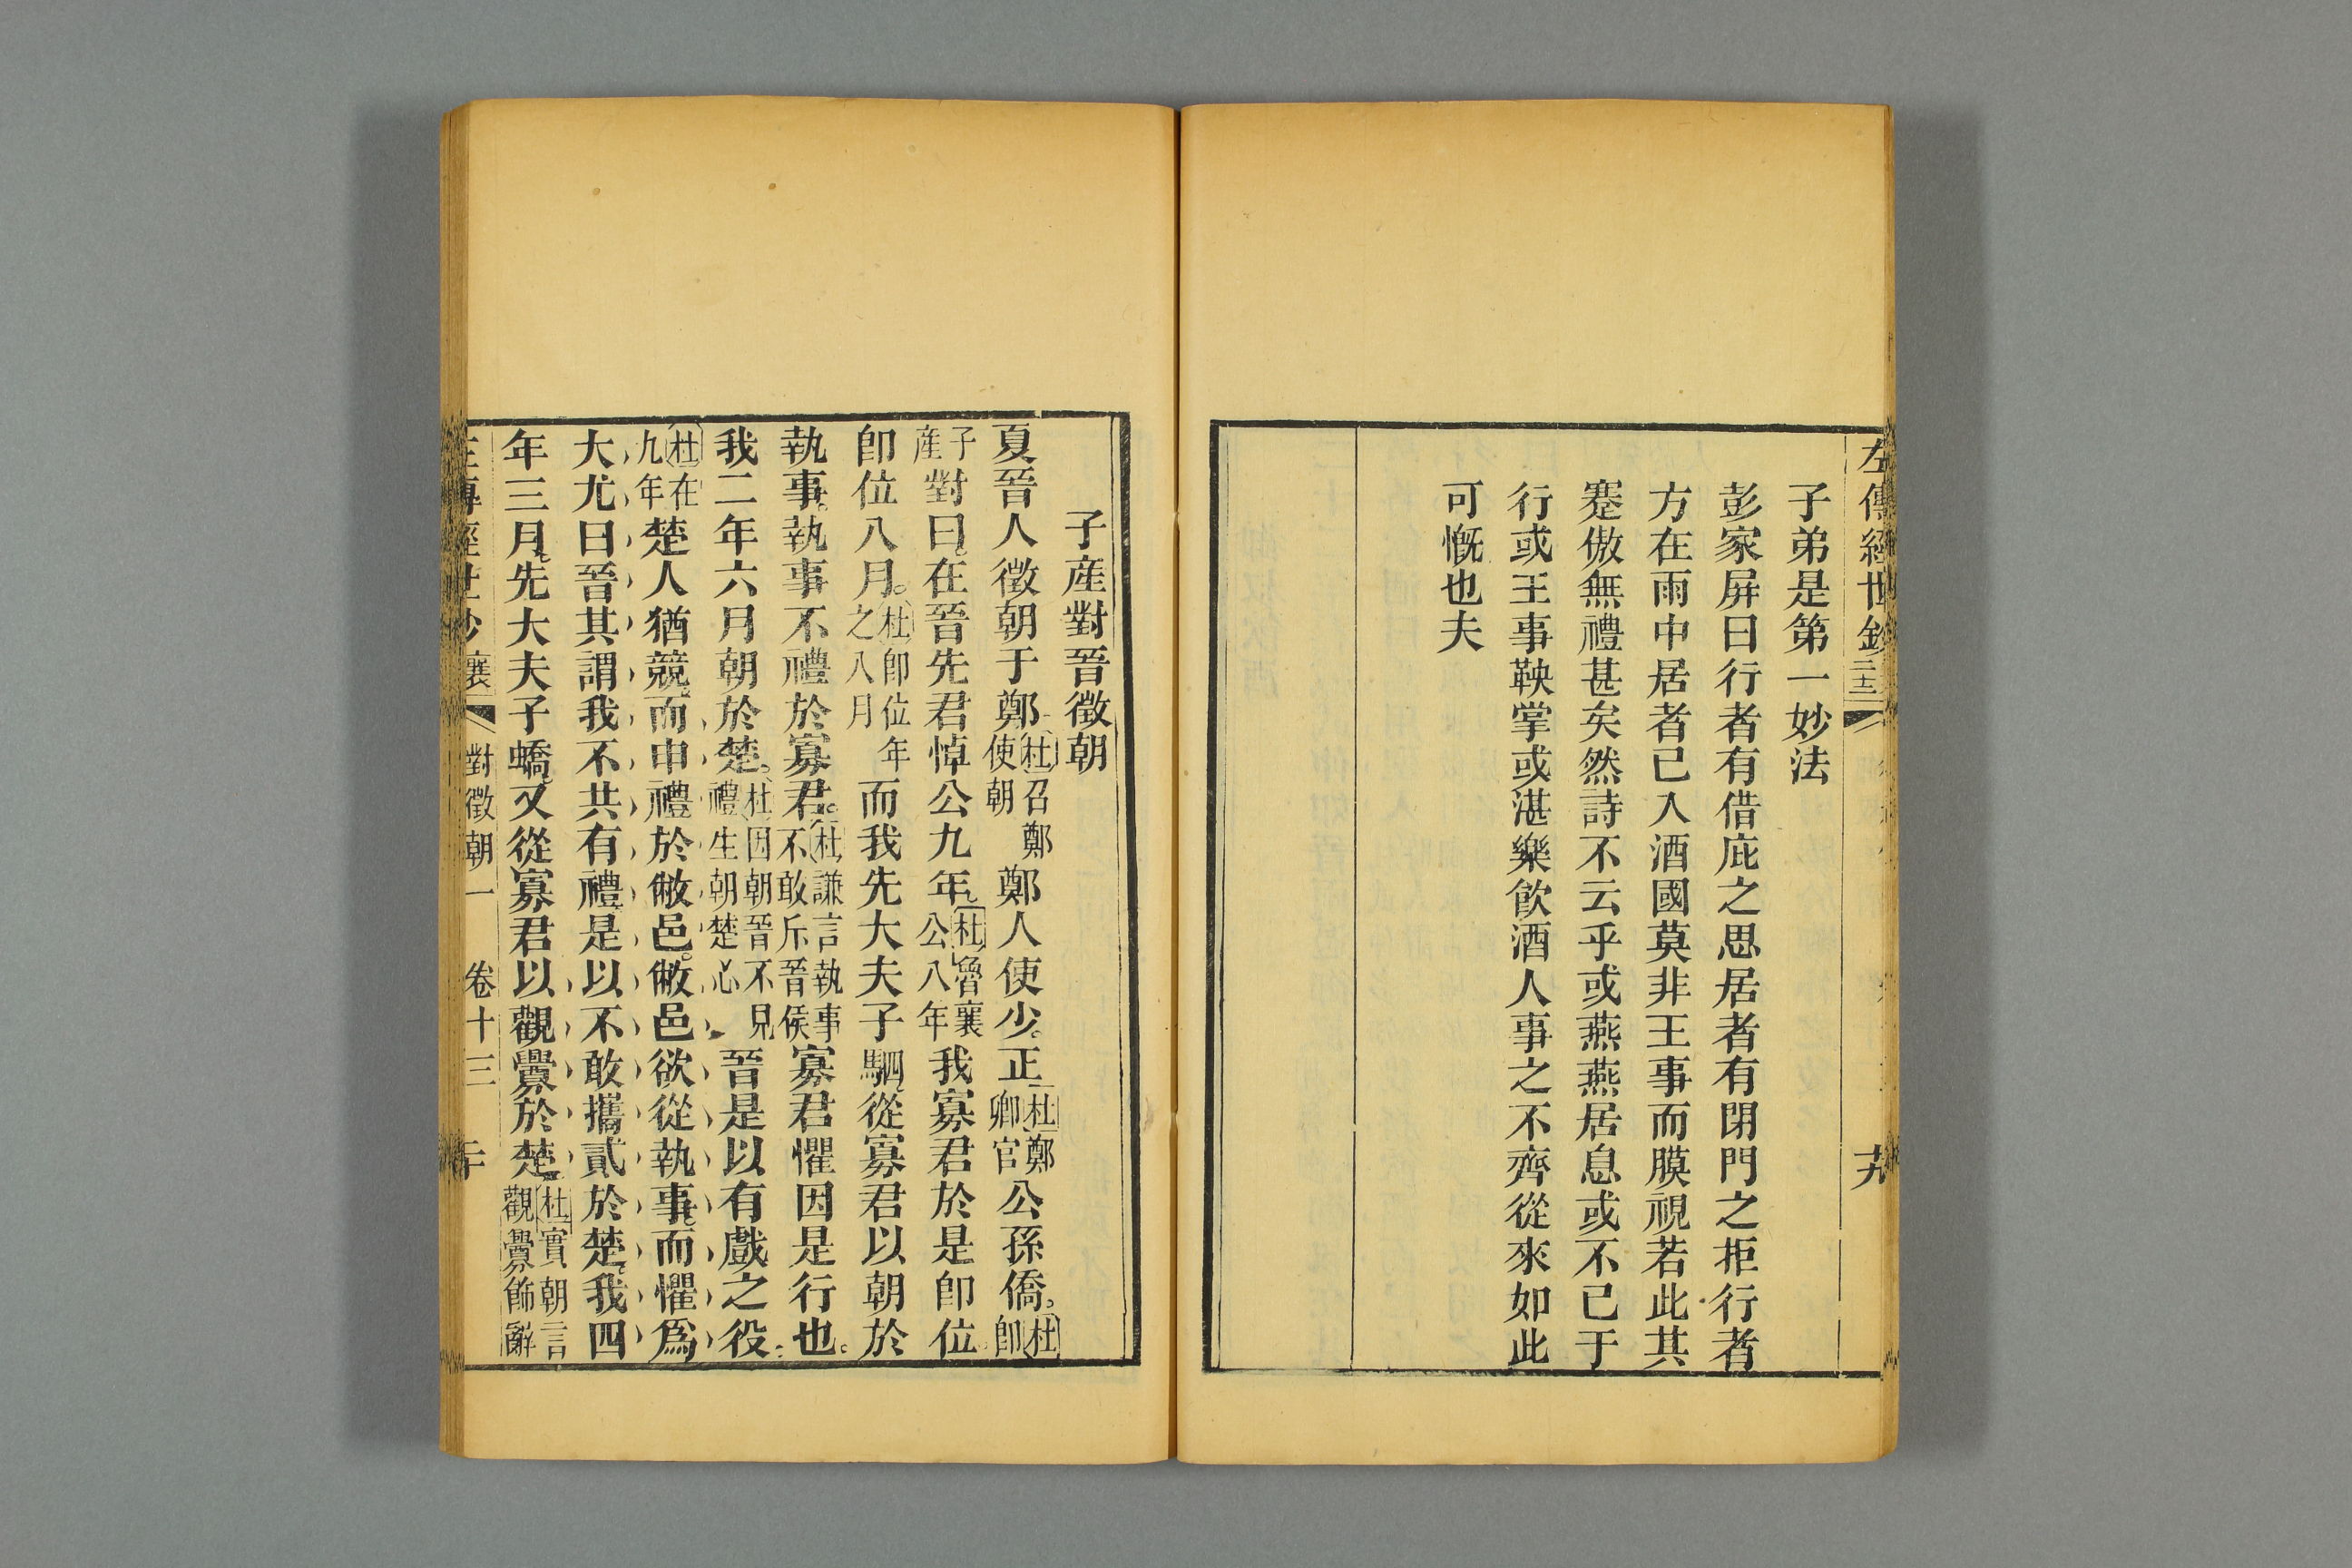 左傳經世鈔
子弟是第一妙法
彭家屏曰行者有借庇之思居者有閉門之拒行者
方在雨中居者已入酒國莫非王事而膜視若此其
蹇傲無禮甚矣然詩不云乎或燕燕居息或不已于
行或王事鞅掌或湛樂飲酒人事之不齊從來如此
可慨也夫
子產對晉徵朝
夏晉人徵朝于鄭杜召鄭使朝鄭人使少正杜鄭卿官公孫僑杜卽
子產對曰在晉先君悼公九年杜魯襄公八年我寡君於是卽位
卽位八月杜卽位年之八月而我先大夫子駟從寡君以朝於
執事執事不禮於寡君杜謙言執事不敢斥晉侯寡君懼因是行也
我二年六月朝於楚杜因朝晉不見禮生朝楚心晉是以有戲之役
杜在九年楚人猶競而申禮於敝邑敝邑欲從執事而懼爲
大尤曰晉其謂我不共有禮是以不敢攜貳於楚我四
年三月先大夫子蟜又從寡君以觀釁於楚杜實朝言觀釁飾辭
左傳經世鈔 襄 對徵朝一 卷十三